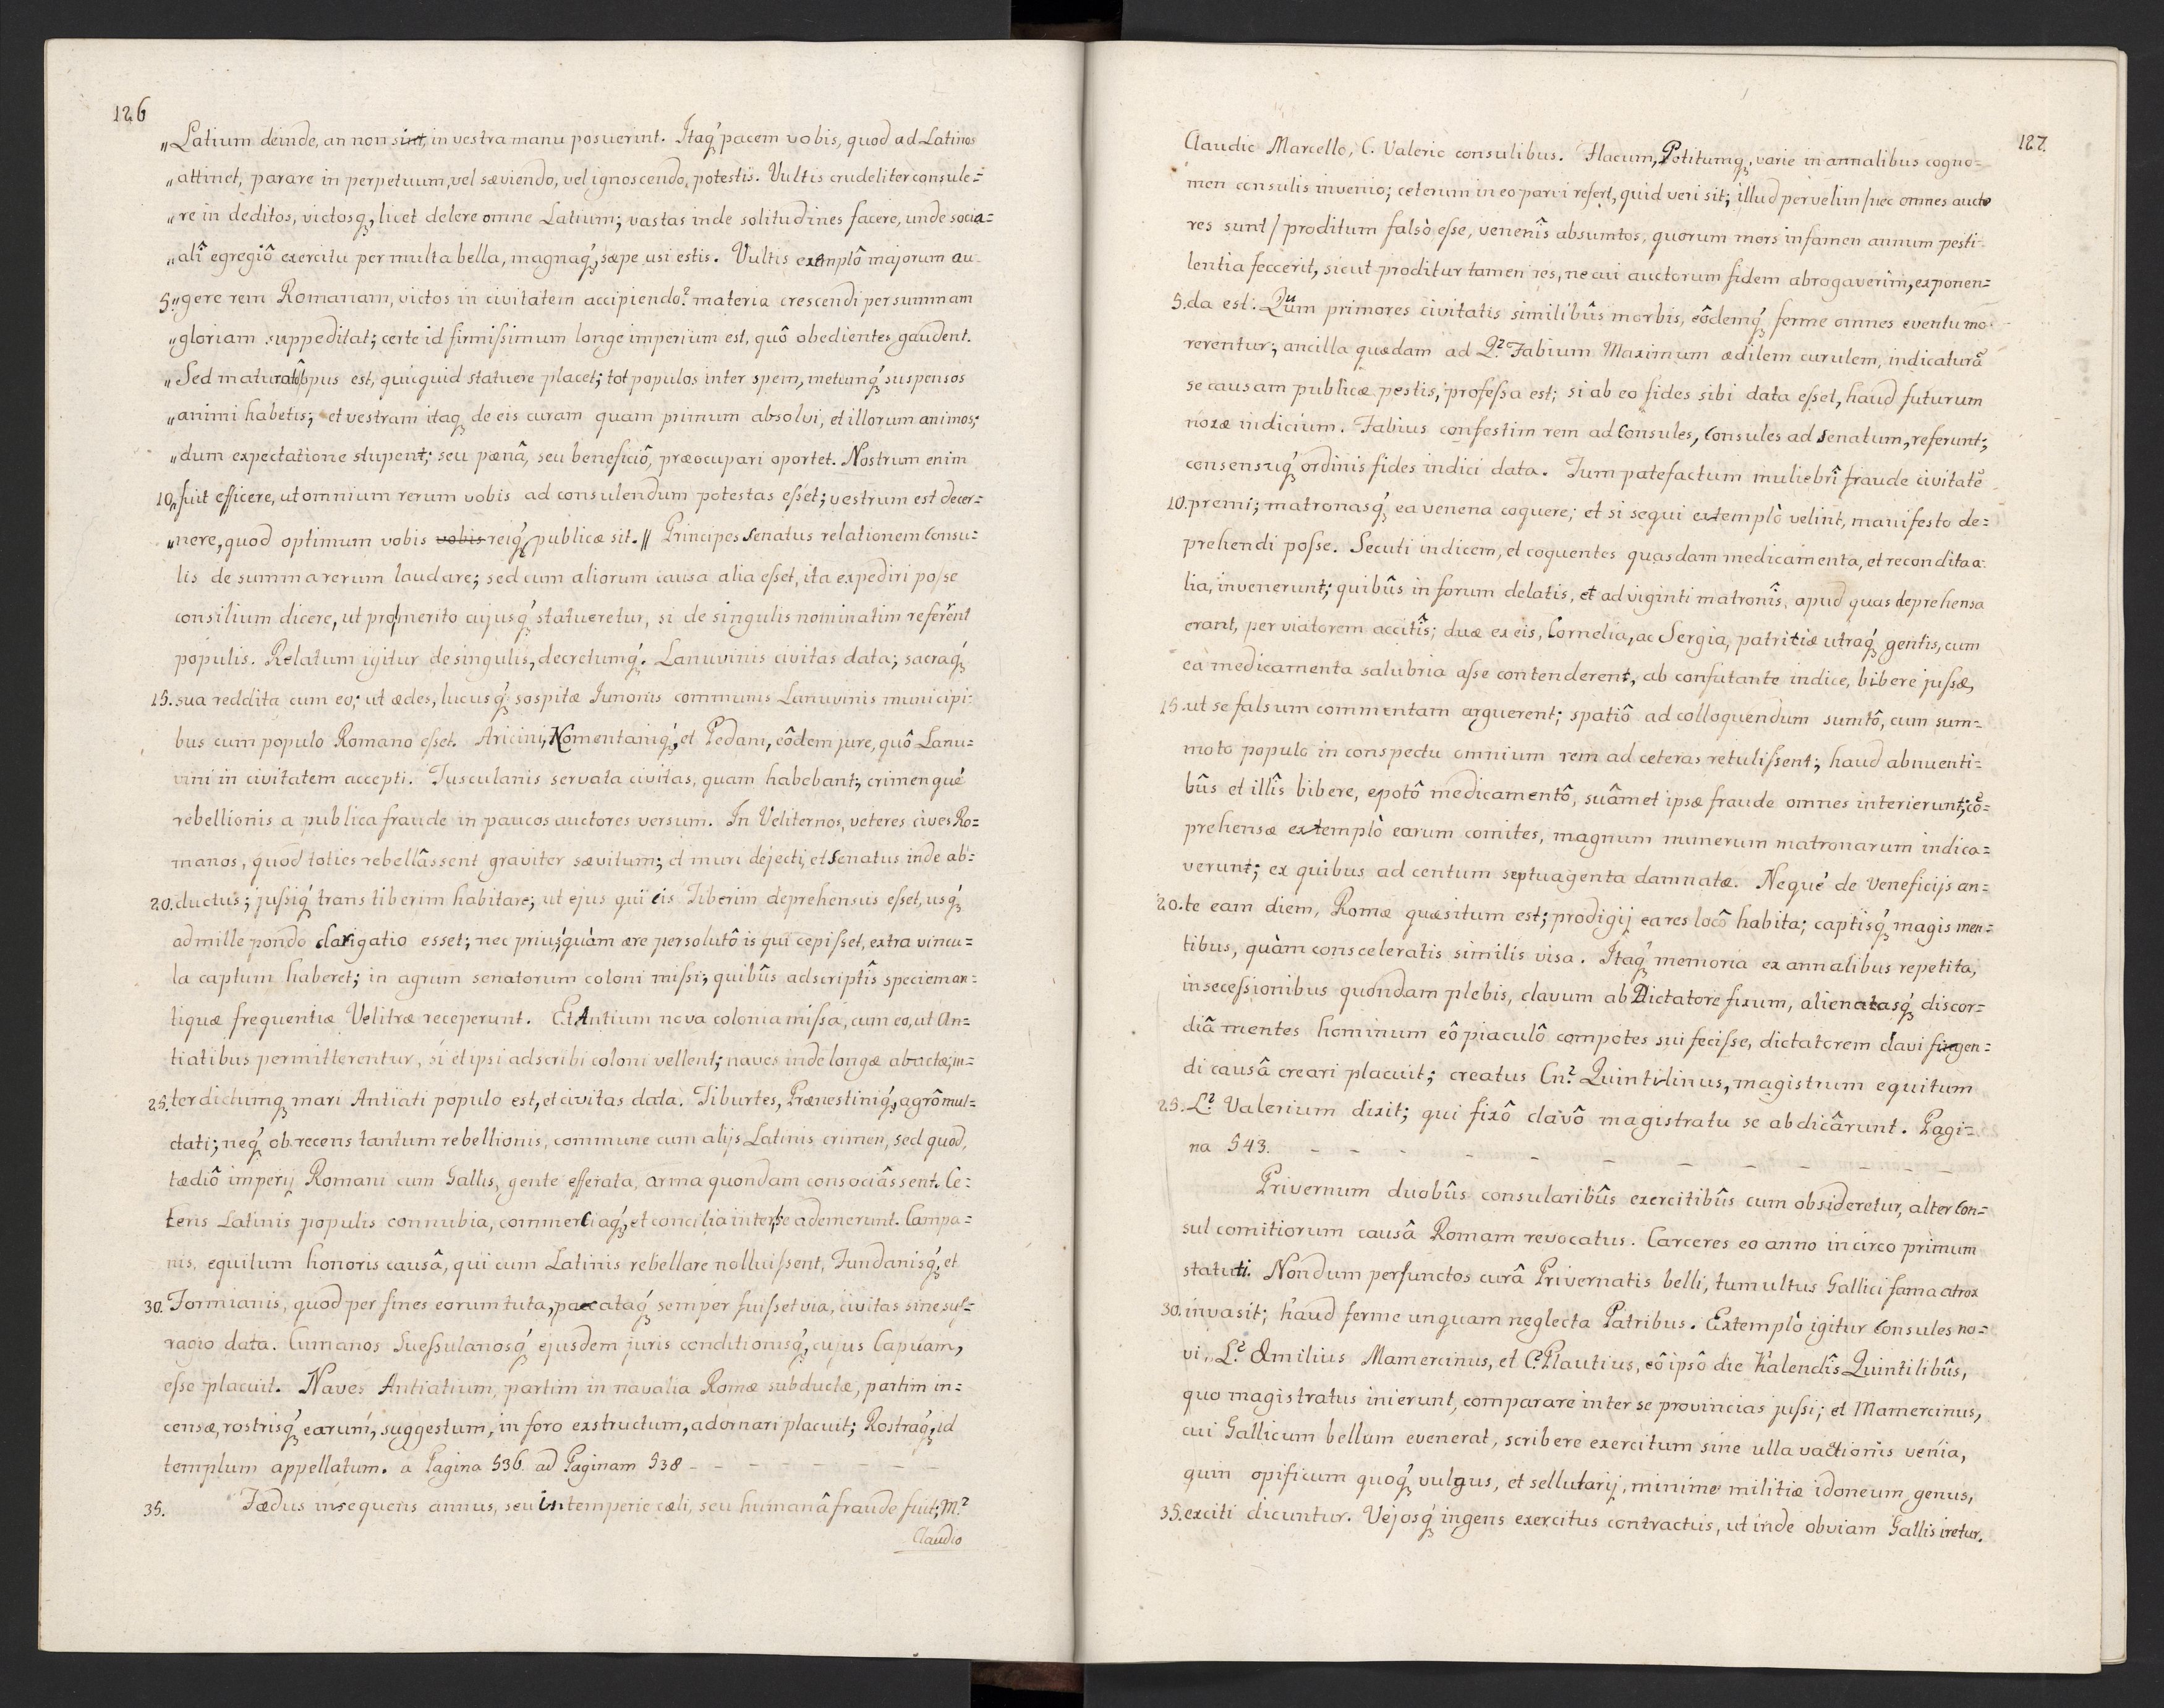 126
„Latium deinde, an non sint, in vestra manu posuerint. Itaq́ pacem vobis, quod ad Latinos
„attinet, parare in perpetuum, vel sæviendo, vel ignoscendo, potestis. Vultis crudeliter consule=
„re in deditos, victosq́, licet delere omne Latium; vastas inde solitudines facere, unde socia=
„alî egregiô exercitu per multa bella, magnaq́, sæpe usi estis. Vultis exemplô majorum au-
5.„gere rem Romanam, victos in civitatem accipiendo? materia crescendi per summam
„gloriam suppeditat; certe id firmissimum longe imperium est, quô obedientes gaudent.
„Sed maturatô opus est, quicquid statuere placet; tot populos inter spem, metumq́ suspensos
„animi habetis; et vestram itaq́ de eis curam quam primum absolvi, et illorum animos,
„dum expectatione stupent; seu pænâ, seu beneficiô, præocupari oportet. Nostrum enim
10.„fuit efficere, ut omnium rerum vobis ad consulendum potestas esset; vestrum est decer=
„nere, quod optimum vobis vobis reiq́ publicæ sit. // Principes Senatus relationem Consu=
lis de summa rerum laudare; sed cum aliorum causa alia esset, ita expediri posse
consilium dicere, ut pro merito cujusq́ statueretur, si de singulis nominatim referēt
populis. Relatum igitur de singulis, decretumq́. Lanuvinis civitas data; sacraq́
15. sua reddita cum eo; ut ædes, lucusq́ sospitæ Iunonis communis Lanuvinis municipi=
bus cum populo Romano esset. Aricini, Nomentaniq́, et Pedani, eôdem jure, quô Lanu=
vini in civitatem accepti. Tusculanis servata civitas, quam habebant; crimenqué
rebellionis a publica fraude in paucos auctores versum. In Veliternos, veteres cives Ro=
manos, quod toties rebellâssent graviter sævitum; et muri dejecti, et Senatus inde ab=
20. ductus; jussiq́ trans tiberim habitare; ut ejus qui cis Tiberim deprehensus esset, usq́
ad mille pondo clarigatio esset; nec priusquàm ære persolutô is qui cepisset, extra vincu=
la captum haberet; in agrum senatorum coloni missi; quibûs adscriptîs speciem an=
tiquæ frequentiæ Velitræ receperunt. Et Antium nova colonia missa, cum eo, ut An=
tiatibus permitterentur, si et ipsi adscribi coloni vellent; naves inde longæ abactæ, in=
25. terdictumq́ mari Antiati populo est, et civitas data. Tiburtes, Prænestiniq́, agrô mul=
ctati; neq́ ob recens tantum rebellionis, commune cum alijs Latinis crimen, sed quod,
tædiô imperij Romani cum Gallis, gente efferata, arma quondam consociâssent. Ce=
teris Latinis populis connubia, commerciaq́, et concilia inter se ademerunt. Campa=
nis, equitum honoris causâ, qui cum Latinis rebellare nolluissent, Fundanisq́, et
30. Formianis, quod per fines eorum tuta, pacataq́ semper fuisset via, civitas sine suf=
ragio data. Cumanos Suessulanosq́ ejusdem juris conditionisq́, cujus Capuam,
esse placuit. Naves Antiatium, partim in navalia Romæ subductæ, partim in=
censæ, rostrisq́ earum, suggestum, in foro exstructum, adornari placuit; Rostraq́, id
templum appellatum. a Pagina 536 ad Paginam 538 - - - - - -
35. Fœdus insequens annus, seu intemperie cæli, seu humanâ fraude fuit; M?
Claudio
127.
Claudio Marcello, C. Valerio consulibus. Flacum, Potitumq́, varie in annalibus cogno=
men consulis invenio; ceterum in eo parvi refert, quid veri sit; illud pervelim /nec omnes aucto
res sunt/ proditum falsò esse, venenîs absumtos, quorum mors infamen annum pesti-
lentia feccerit, sicut proditur tamen res, ne cui auctorum fidem abrogaverim, exponen=
5. da est. Quum primores civitatis similibûs morbis, eôdemq́ ferme omnes eventu mo-
rerentur; ancilla quædam ad Q? Fabium Maximum ædilem curulem, indicaturā
se causam publicæ pestis, professa est; si ab eo fides sibi data esset, haud futurum
noxæ indicium. Fabius confestim rem ad Consules, Consules ad Senatum, referunt;
consensuq́ ordinis fides indici data. Tum patefactum muliebrî fraude civitatē
10. premi; matronasq́ ea venena coquere; et si sequi extemplò velint, manifesto de=
prehendi posse. Secuti indicem, et coquentes quasdam medicamenta, et recondita a-
lia, invenerunt; quibûs in forum delatis, et ad viginti matronîs, apud quas deprehensa
erant, per viatorem accitîs; duæ ex eis, Cornelia, ac Sergia, patritiæ utraq́ gentis, cum
ea medicamenta salubria esse contenderent, ab confutante indice, bibere jussæ,
15. ut se falsum commentam arguerent; spatiô ad colloquendum sumtô, cum sum=
moto populo in conspectu omnium rem ad ceteras retulissent; haud abnuenti=
bûs et illîs bibere, epotô medicamentô, suâmet ipsæ fraude omnes interierunt; cō=
prehensæ extemplò earum comites, magnum numerum matronarum indica=
verunt; ex quibus ad centum septuagenta damnatæ. Nequé de Veneficijs an=
20. te eam diem, Romæ quæsitum est; prodigij ea res locô habita; captisq́ magis men=
tibus, quàm consceleratis similis visa. Itaq́ memoria ex annalibus repetita,
in secessionibus quondam plebis, clavum ab Dictatore fixum, alienatasq́ discor=
diâ mentes hominum eô piaculô compotes sui fecisse, dictatorem clavi figen=
di causâ creari placuit; creatus Cn? Quintilinus, magistrum equitum
25. L? Valerium dixit; qui fixô clavô magistratu se abdicârunt. Pagi=
na 543. - - - - - - - - - -
Privernum duobûs consularibûs exercitibûs cum obsideretur, alter Con=
sul comitiorum causâ Romam revocatus. Carceres eo anno in circo primum
statuti. Nondum perfunctos curâ Privernatis belli, tumultus Gallici fama atrox
30. invasit; haud ferme unquam neglecta Patribus. Extemplò igitur Consules no=
vi, L? Æmilius Mamercinus, et C? Plautius, eô ipsô die Kalendîs Quintilibûs,
quo magistratus inierunt, comparare inter se provincias jussi; et Mamercinus,
cui Gallicum bellum evenerat, scribere exercitum sine ulla vactionis venia,
quin opificum quoq́ vulgus, et sellularij, minime militiæ idoneum genus,
35. exciti dicuntur. Vejosq́ ingens exercitus contractus, ut inde obviam Gallis iretur.